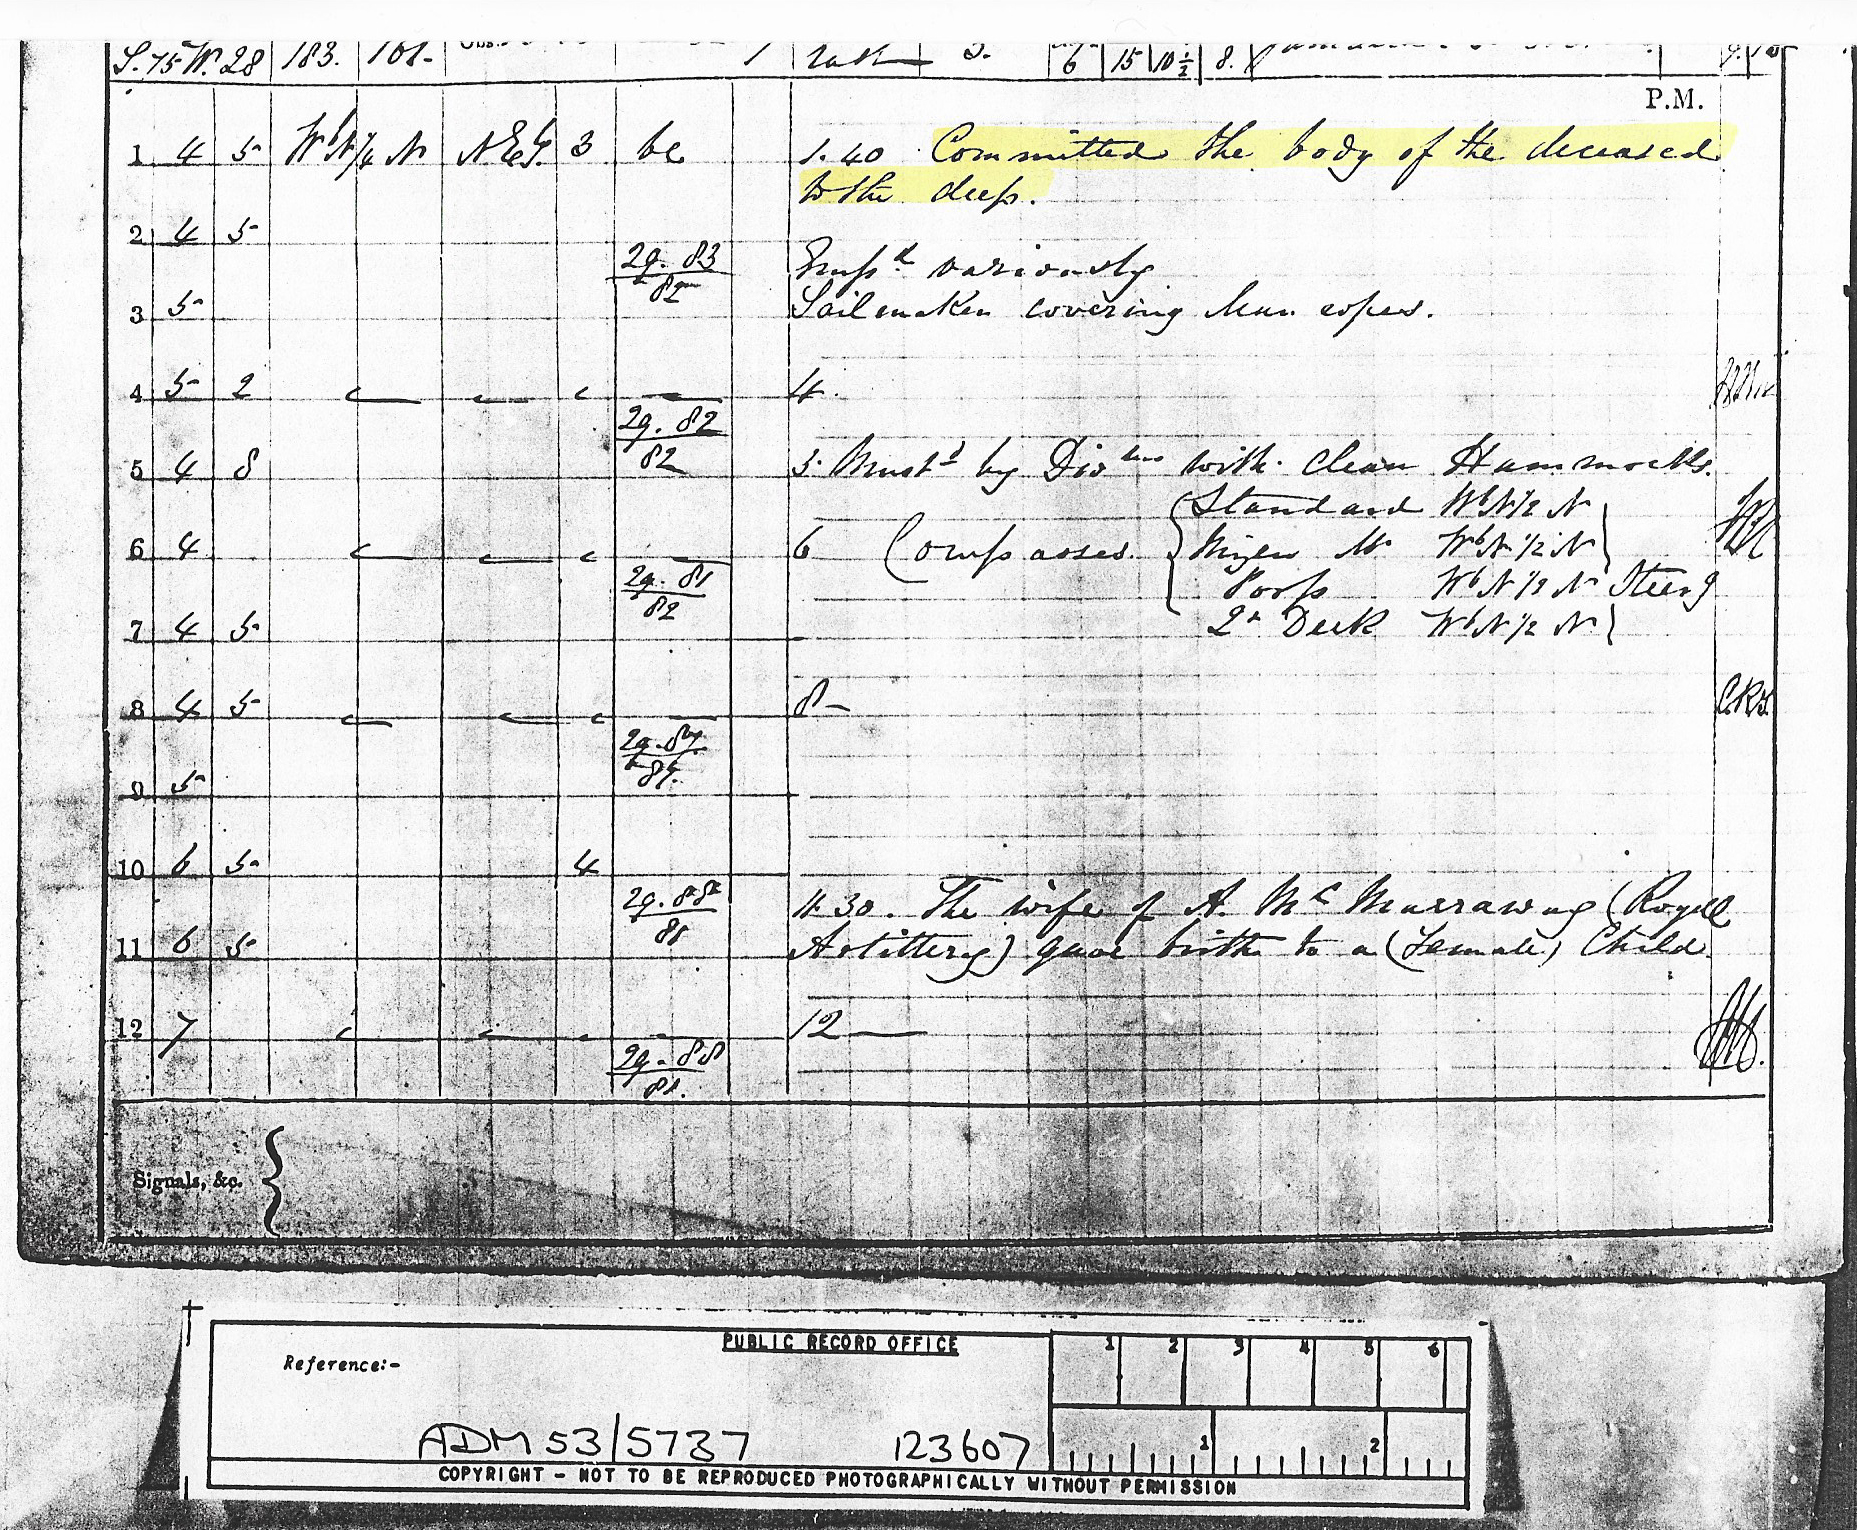 S. 75 W. 28 183. 101.
6 15 10 1/2 8.
P.M.
1 4 5 WbN 1/4 N 3 bc 1.40 Committed the body of the deceased
to the deep.
2 4 5
29.83 Emp.d variously
82
3 5 Sailmaker covering Man ropes.
4 5 2 4.
29.82
82
5 4 8 5. Must.d by Div.ions with clean Hammocks.
Standard WbN 1/2 N
6 4 6 Compasses. Mizen M. WbN 1/2 N
29.81 Poop WbN 1/2 N Steer.g
82
7 4 5 2.r Deck WbN 1/2 N
8 4 5 8
9 5
10 6 5 4
11.30. The wife of A. Mc (Royal
81
11 6 5 Artillery) gave birth to a (Female) Child.
12 7 12
29.88
81.
Signals, &c.
PUBLIC RECORD OFFICE
1 2 3 4 5 6
Reference:-
ADM 53/5737 123607
1 2
COPYRIGHT - NOT TO BE REPRODUCED PHOTOGRAPHICALLY WITHOUT PERMISSION